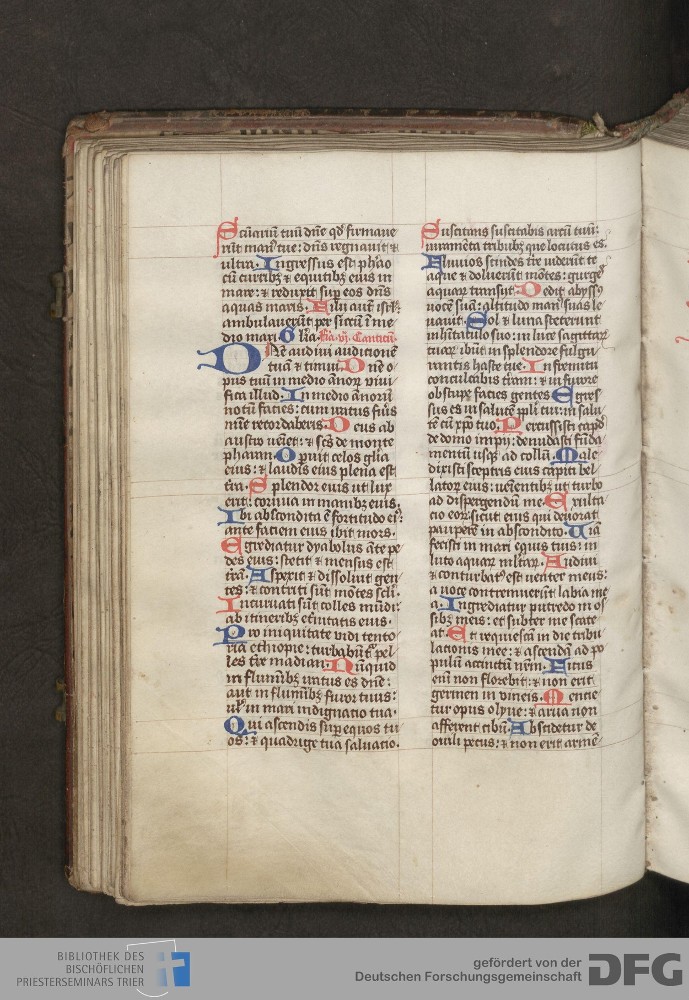 Scuariū tuū dn̄e qd̓ firmaue
rūt man⁹ tue: dn̄s regnauit ⁊
ultra. Ingressus est pharao
cū curribꝫ ⁊ equitibꝫ eius in
mare: ⁊ reduxit sup̱ eos dn̄s
aquas maris. Filii aut̄ isrl̓:
ambulauerūt per siccū ī me
dio mari. Glīa. fīa. vj. Canticū.
Dn̄e audiui auditionē
tuā ⁊ timui. Dn̄e o
pus tuū in medio ānoꝝ viui
fica illud. In medio ānoꝝ
notū facies: cum iratus fu͛is
mīe recordaberis. Deus ab
austro ueīet: ⁊ scs̄ de monte
pharan. Operuit celos gl̄ia
eius: ⁊ laudis eius plena est
tr̄ra. Splendor eius ut lux
erit: cornua in manibꝫ eius.
Ibi abscondita ē fortitudo ei⁹:
ante faciem eius ibit mors.
Egrediatur dyabolus āte pe
des eius: stetit ⁊ mensus est
tr̄ā. Aspexit ⁊ dissoluit gen
tes: ⁊ contriti sūt mōtes scl̄i.
Incuruati sūt colles mūdi:
ab itineribꝫ et̓nitatis eius.
Pro iniquitate vidi tento
ria ethiopie: turbabūt᷑ pel
les tr̄e madian. Nūquid
in fluminibꝫ iratus es dn̄e:
aut in fluminibꝫ furor tuus:
ul̓ in mari indignatio tua.
Qui ascendis sup̱ equos tu
os: ⁊ quadrige tua saluatio.
Suscitans suscitabis arcū tuū:
iuramēta tribubꝫ que locutus es.
Fluuios scindes tr̄e uiderūt te
aque ⁊ doluerūt mōtes: gurges
aquaꝝ transiit. Dedit abyssus
uocē suā: altitudo man⁹ suas le
uauit. Sol ⁊ luna steterunt
in hītaculo suo: in luce sagittaꝝ
tuaꝝ ibūt in splendore fulgu
rantis haste tue. In fremitu
conculcabis tr̄am: ⁊ in furore
obstupe facies gentes. Egres
sus es in salutē ppl̄i tui: in salu
tē cū xp̄o tuo. Percussisti caput
de domo impij: denudasti fūda
mentū usqꝫ ad collū. Male
dixisti sceptris eius capiti bel
latoꝝ eius: uēientibꝫ ut turbo
ad dispergendū me. Exulta
tio eoꝝ: sicut eius qui deuorat
pauperē in abscondito. Uiā
fecisti in mari equis tuis: in
luto aquaꝝ ml̓taꝝ. Audiui
⁊ conturbat⁹ est uenter meus:
a uoce contremuerūt labia me
a. Ingrediatur putredo in os
sibꝫ meis: et subter me scate
at. Et requiescā in die tribu
lationis mee: ⁊ ascendā ad po
pulū accinctū nr̄m. Ficus
enī non florebit: ⁊ non erit
germen in vineis. Mentie
tur opus oliue: ⁊ arua non
afferent cibū. Abscidetur de
ouili pecus: ⁊ non erit armē
BIBLIOTHEK DES
BISCHÖFLICHEN
PRIESTERSEMINARS TRIER
gefördert von der
Deutschen Forschungsgemeinschaft
DFG